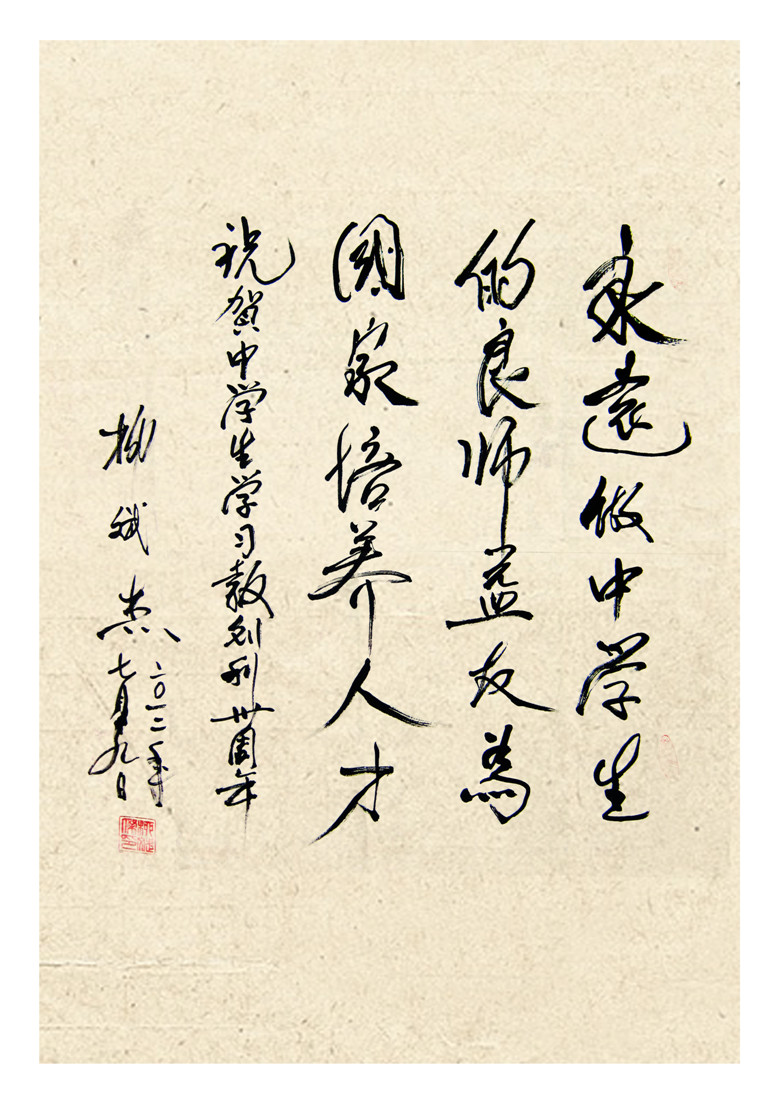 永遠做中学生
的良师益友為
國家培养人才
祝贺中学生学习報创刊卅周年
柳斌杰
二〇一二年
七月九日